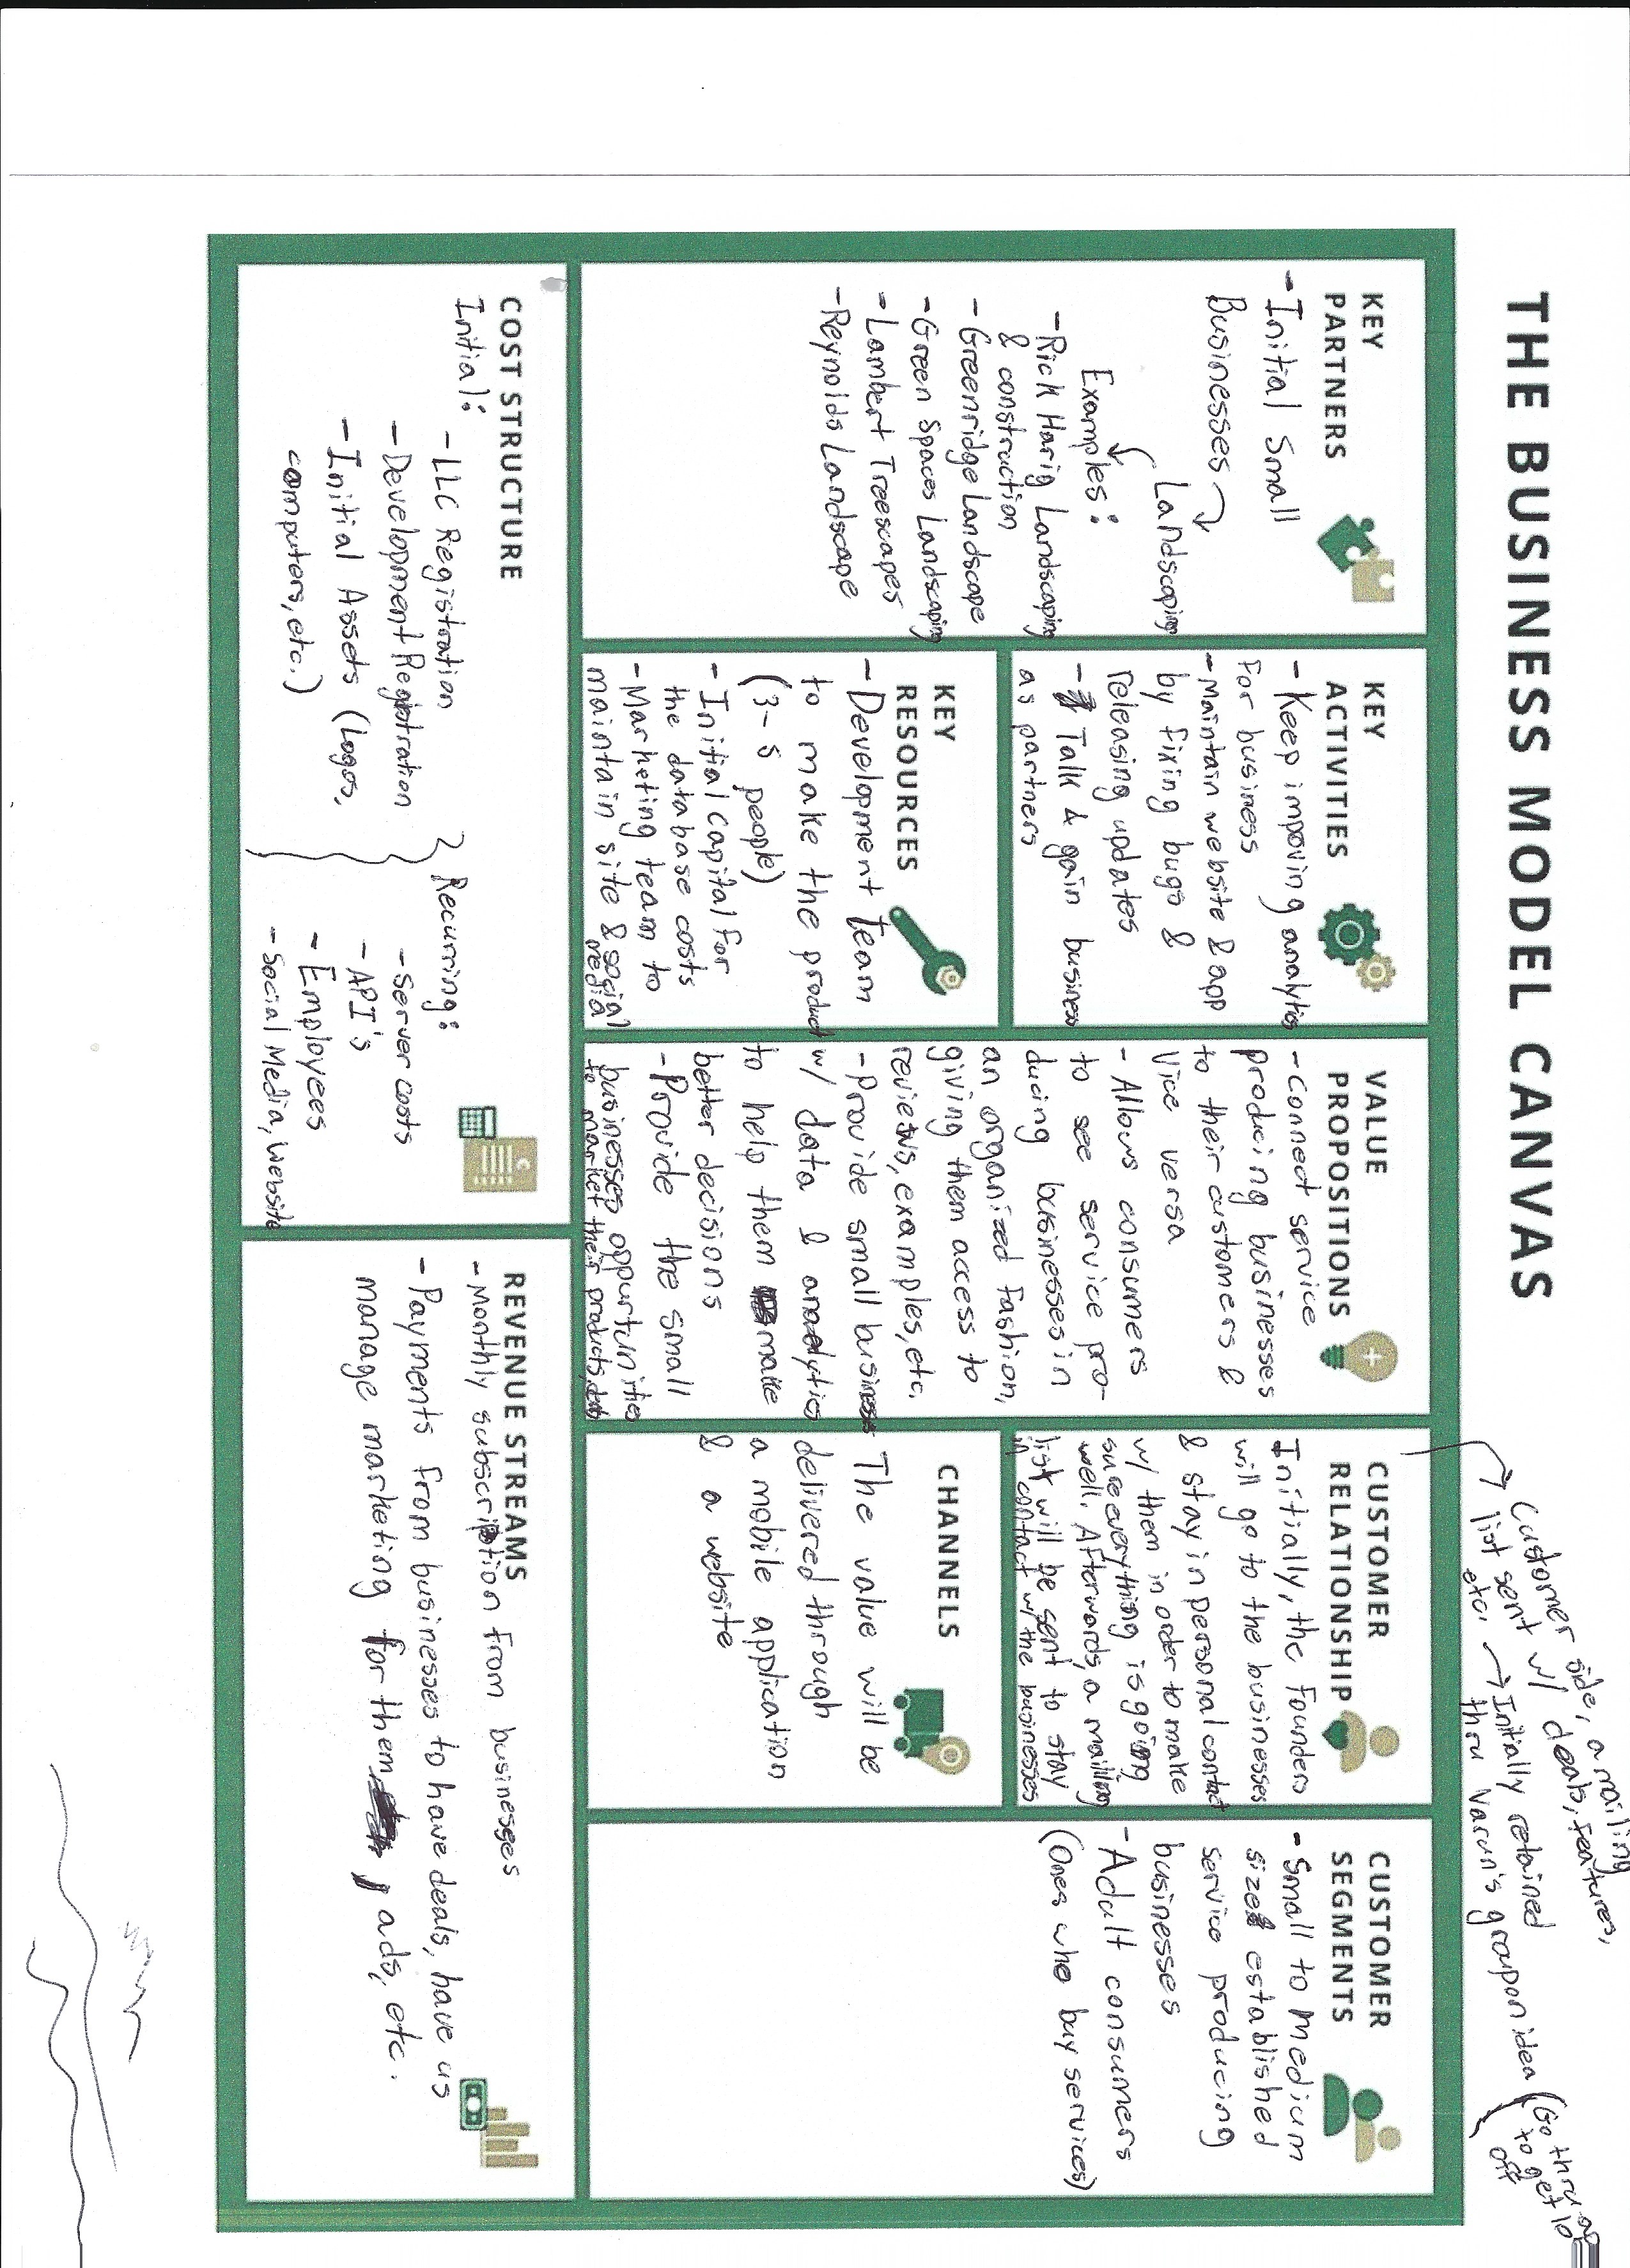 THE BUSINESS MODEL CANVAS
Customer side, a mailing
list sent w/ deals, features,
etc. → Initially retained
thru Varun's groupon idea
(Go thru
to get
off
KEY
PARTNERS
- Initial Small
Businesses
Landscaping
Examples:
- Rick Harig Landscaping
& construction
- Greenridge Landscape
- Green Spaces Landscaping
- Lambert Treescapes
- Reynolds Landscape
KEY
ACTIVITIES
- Keep impoving analytics
for business
- Maintain website & app
by fixing bugs &
releasing updates
- Talk & gain business
as partners
KEY
RESOURCES
- Development Team
to make the product
(3-5 people)
- Initial Capital for
the database costs
- Marketing team to
maintain site & social
media
VALUE
PROPOSITIONS
- Connect service
producing businesses
to their customers &
Vice versa
- Allows consumers
to see service pro-
ducing businesses in
an organized fashion,
giving them access to
reviews, examples, etc.
- Provide small business
w/ data & analytics
to help them make
better decisions
- Provide the small
businesses oppurtunities
to market their products, deals
CUSTOMER
RELATIONSHIP
Initially, the Founders
will go to the businesses
& stay in personal contact
w/ them in order to make
sure everything is going
well. Afterwards, a mailing
list will be sent to stay
in contact w/ the businesses
CHANNELS
The value will be
delivered through
a mobile application
& a website
CUSTOMER
SEGMENTS
- Small to medium
size established
service producing
businesses
- Adult consumers
(Ones who buy services)
COST STRUCTURE
Initial:
- LLC Registration
- Development Registration
- Initial Assets (Logos,
computers, etc.)
Recurring:
- Server costs
- API's
- Employees
- Social Media, Website
REVENUE STREAMS
- Monthly subscription from businesses
- Payments from businesses to have deals, have us
manage marketing for them, ads, etc.